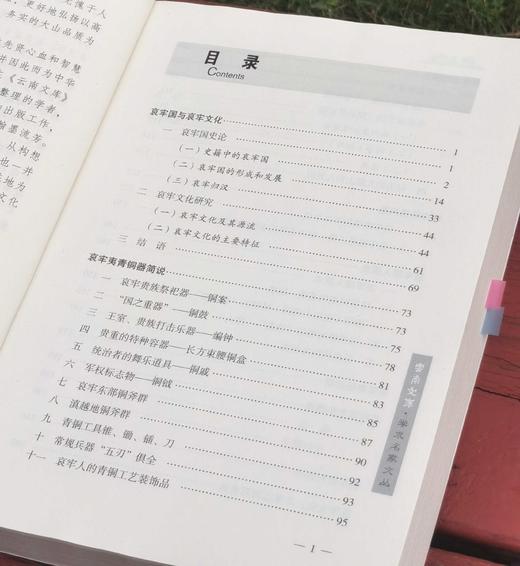 无愧于人
，更好地弘扬以高
、务实的大山品质为
先贤心血和智慧
并因此而为中华
《云南文库》
整理的学者，
出版工作，
翰墨流芳。
，从构想
也一并
地为
文化
目 录
Contents
哀牢国与哀牢文化 1
一 哀牢国史论 1
（一）史籍中的哀牢国 2
（二）哀牢国的形成和发展 14
（三）哀牢归汉 33
二 哀牢文化研究 44
（一）哀牢文化及其源流 44
（二）哀牢文化的主要特征 61
三 结 语 69
哀牢夷青铜器简说 73
一 哀牢贵族祭祀器——铜案 73
二 “国之重器”——铜鼓 75
三 王室、贵族打击乐器——编钟 78
四 贵重的特种容器——长方束腰铜盒 81
五 统治者的舞乐道具——铜戚 83
六 军权标志物——铜钺 85
七 哀牢东部铜斧群 87
八 滇越地铜斧群 90
九 青铜工具锥、锄、锸、刀 92
十 常规兵器“五刃”俱全 93
十一 哀牢人的青铜工艺装饰品 95
云南文库·学术名家文丛
— 1 —